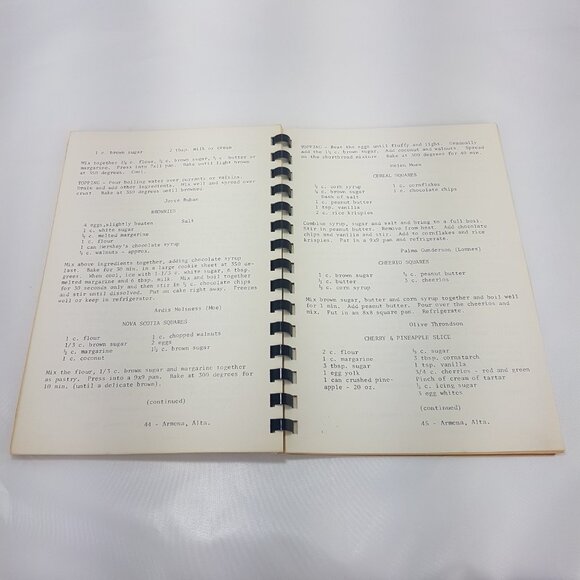 1 c. brown sugar 2 tbsp. milk or cream
Mix together 1½ c. flour, ½ c. brown sugar, ½ c. butter or
margarine. Press into 9x11 pan. Bake until light brown
at 350 degrees. Cool.
TOPPING - Pour boiling water over currants or raisins.
Drain and add other ingredients. Mix well and spread over
crust. Bake at 350 degrees until browned.
Joyce Ruban
BROWNIES
4 eggs, slightly beaten Salt
1 c. white sugar
½ c. melted margarine
1 c. flour
1 can Hershey's chocolate syrup
½ c. walnuts - approx.
Mix above ingredients together, adding chocolate syrup
last. Bake for 30 min. in a large cookie sheet at 350 de-
grees. When cool, ice with 1 1/3 c. white sugar, 6 tbsp.
melted margarine and 6 tbsp. milk. Mix and boil together
for 30 seconds only and then stir in ½ c. chocolate chips
and stir until dissolved. Put on cake right away. Freezes
well or keep in refrigerator.
Andis Molsness (Moe)
NOVA SCOTIA SQUARES
1 c. flour ½ c. chopped walnuts
1/3 c. brown sugar 2 eggs
½ c. margarine 1½ c. brown sugar
1 c. coconut
Mix the flour, 1/3 c. brown sugar and margarine together
as pastry. Press into a 9x9 pan. Bake at 300 degrees for
10 min. (until a delicate brown).
(continued)
44 - Armena, Alta.
TOPPING - Beat the eggs until fluffy and light. Gradually
add the 1½ c. brown sugar. Add coconut and walnuts. Spread
on the shortbread mixture. Bake at 300 degrees for 40 min.
Helen Moen
CEREAL SQUARES
½ c. corn syrup 1 c. cornflakes
½ c. brown sugar 1 c. chocolate chips
Dash of salt
1 c. peanut butter
1 tsp. vanilla
2 c. rice krispies
Combine syrup, sugar and salt and bring to a full boil.
Stir in peanut butter. Remove from heat. Add chocolate
chips and vanilla and stir. Add to cornflakes and rice
krispies. Put in a 9x9 pan and refrigerate.
Palma Gunderson (Lonnes)
CHEERIO SQUARES
1 c. brown sugar ½ c. peanut butter
½ c. butter 3 c. cheerios
½ c. corn syrup
Mix brown sugar, butter and corn syrup together and boil well
for 1 min. Add peanut butter. Pour over the cheerios and
mix. Put in an 8x8 square pan. Refrigerate.
Olive Throndson
CHERRY & PINEAPPLE SLICE
2 c. flour ½ c. sugar
1 c. margarine 3 tbsp. cornstarch
3 tbsp. sugar 1 tsp. vanilla
1 egg yolk 3/4 c. cherries - red and green
1 can crushed pine- Pinch of cream of tartar
apple - 20 oz. ½ c. icing sugar
4 egg whites
(continued)
45 - Armena, Alta.